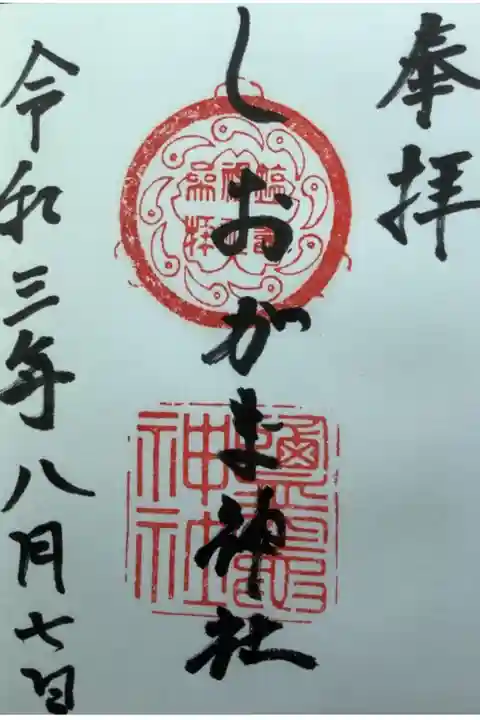 奉拝
しおがま神社
令和三年八月七日
神社